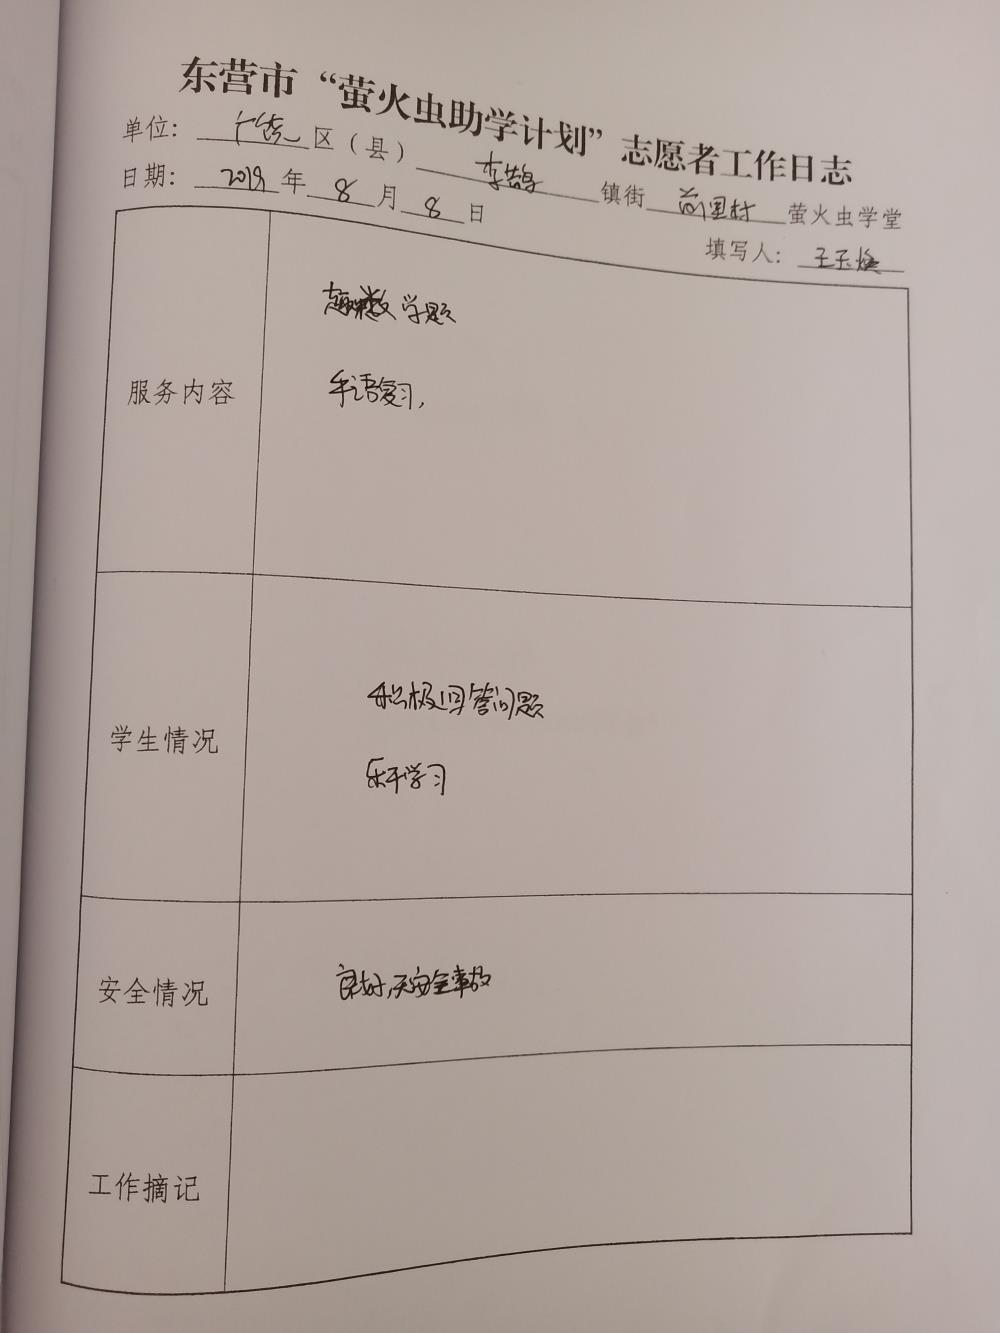 东营市“萤火虫助学计划”志愿者工作日志
单位：广饶区（县）李鹊镇街 前里村 萤火虫学堂
日期：2019年8月8日
填写人：王玉
服务内容
趣味数学题
手语复习，
学生情况
积极回答问题
乐于学习
安全情况
良好，无安全事故
工作摘记